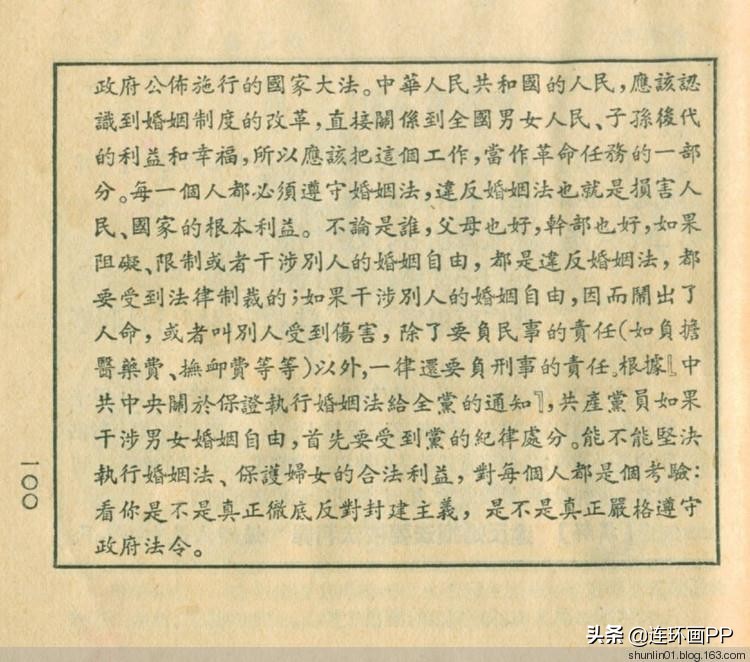 政府公佈施行的國家大法。中華人民共和國的人民，應該認
識到婚姻制度的改革，直接關係到全國男女人民、子孫後代
的利益和幸福，所以應該把這個工作，當作革命任務的一部
分。每一個人都必須遵守婚姻法，違反婚姻法也就是損害人
民、國家的根本利益。不論是誰，父母也好，幹部也好，如果
阻礙、限制或者干涉別人的婚姻自由，都是違反婚姻法，都
要受到法律制裁的；如果干涉別人的婚姻自由，因而鬧出了
人命，或者叫別人受到傷害，除了要負民事的責任（如負擔
醫藥費、撫卹費等等）以外，一律還要負刑事的責任。根據〖中
共中央關於保證執行婚姻法給全黨的通知〗，共產黨員如果
干涉男女婚姻自由，首先要受到黨的紀律處分。能不能堅決
執行婚姻法、保護婦女的合法利益，對每個人都是個考驗：
看你是不是真正徹底反對封建主義，是不是真正嚴格遵守
政府法令。
100
头条 @连环画PP
shunlin01.blog.163.com